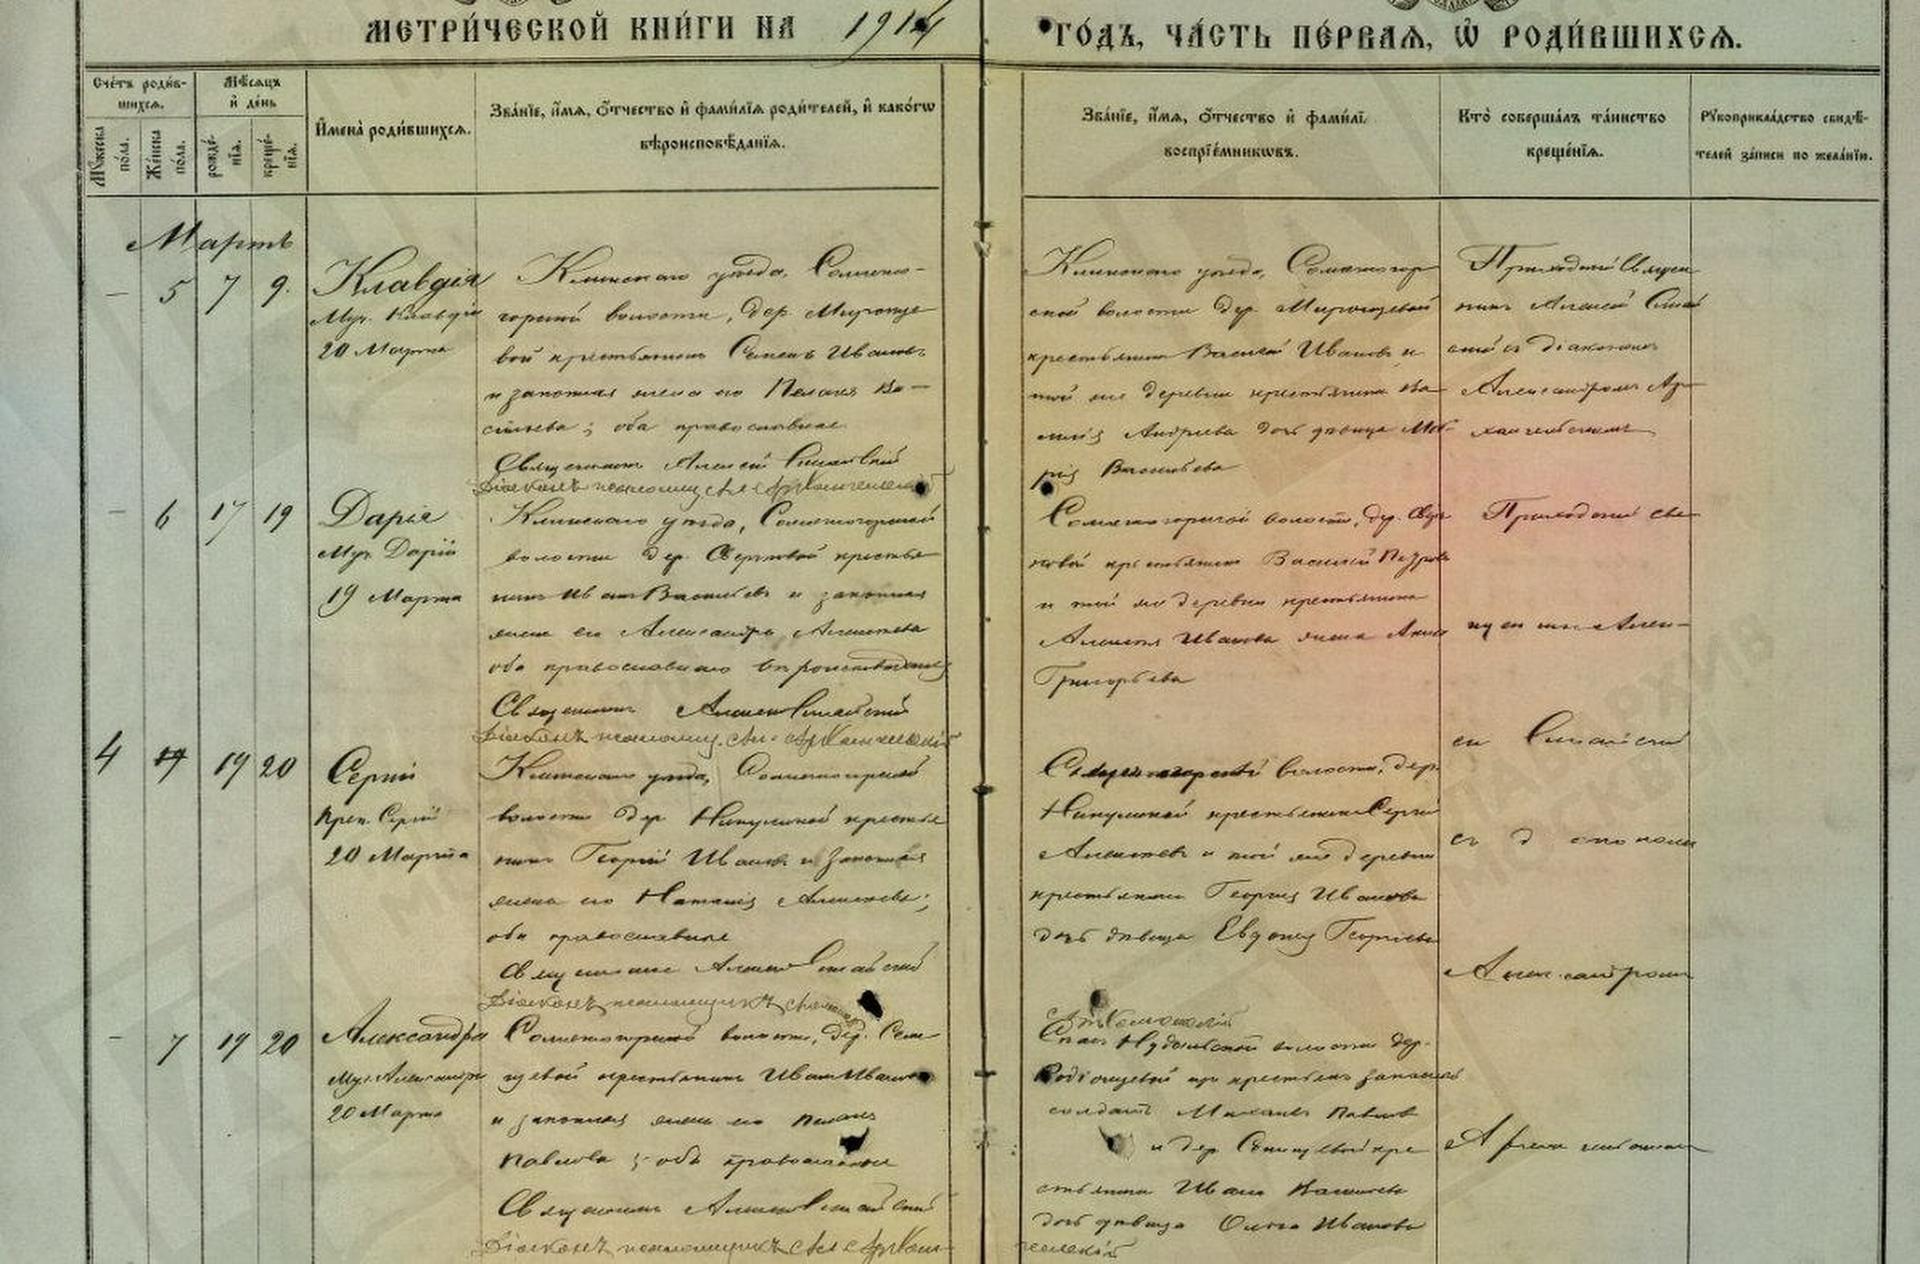 МЕТРИ́ЧЕСКОЙ КНИ́ГИ НА 1914 ГО́ДЪ, ЧА́СТЬ ПЕ́РВАЯ, Ѡ҆ РОДИ́ВШИХСЯ.
Сче́тъ роди́в-
шихся.
Мѣ́сяцъ
и҆ де́нь
И҆мена̀ роди́вшихся.
Зва́нїе, и҆́мя, ѻ҆́тчество и҆ фами́лїя роди́телей, и҆ како́гѡ
вѣроисповѣ́данїя.
Му́жеска по́ла.
Же́нска по́ла.
рожде́нїя.
креще́нїя.
Зва́нїе, и҆́мя, ѻ҆́тчество и҆ фами́лї
воспрїе́мникѡвъ.
Кто̀ соверша́лъ та́инство
креще́нїя.
Рꙋкоприкла́дство свидѣ́-
телей за́писи по жела́нїю.
Мартъ
— 5 7 9.
Клавдія
Муч. Клавдіи
20 Марта
Клинскаго уѣзда, Солнечно-
горской волости, дер.
вой крестьянинъ Семенъ Ивановъ
и законная жена его Пелагія Ва-
сильева; оба православные
Священникъ Алексій Синайскій
Діаконъ псаломщ. Ал. Архангельскій
Клинскаго уѣзда, Солнечногор
ской волости дер.
крестьянинъ Василій Ивановъ и
той же деревни крестьянина Ва-
силія Андреева дочь дѣвица Ма-
рія Васильева
Приходскій Священ
никъ Алексій Синай
скій съ діакономъ
Александромъ Ар-
хангельскимъ
— 6 17 19
Дарія
Муч. Даріи
19 Марта
Клинскаго уѣзда, Солнечногорской
волости дер. крестья
нинъ Иванъ Васильевъ и законная
жена его Александра Алексѣева
оба православнаго вѣроисповѣданія
Священникъ Алексій Синайскій
Діаконъ псаломщ. Ал. Архангельскій
Солнечногорской волости, дер.
крестьянинъ Василій Петровъ
и той же деревни крестьянина
Алексѣя Иванова жена Анна
Григорьева
Приходскій свя
щенникъ Алек-
сій Синайскій
4 19 20
Сергій
Преп. Сергій
20 Марта
Клинскаго уѣзда, Солнечногорской
волости дер. Никулиной крестья
нинъ Георгій Ивановъ и законная
жена его Наталія Алексѣева;
оба православные
Священникъ Алексій Синайскій
Діаконъ псаломщикъ
Солнечногорской волости, дер.
Никулиной крестьянинъ Сергій
Алексѣевъ и той же деревни
крестьянина Георгія Иванова
дочь дѣвица Евдокія Георгіева
съ діакономъ
Александромъ
— 7 19 20
Александра
Муч. Александры
20 Марта
Солнечногорской волости, дер.
крестьянинъ Иванъ Ивановъ
и законная жена его Пелагія
Павлова; оба православные
Священникъ Алексій Синайскій
Діаконъ псаломщикъ Ал. Архан-
Спас-Нудольской волости дер.
крестьянъ запасной
солдатъ Михаилъ Павловъ
и дер. кре
стьянина Ивана
дочь дѣвица Ольга Иванова
гельскій
Архангельскимъ